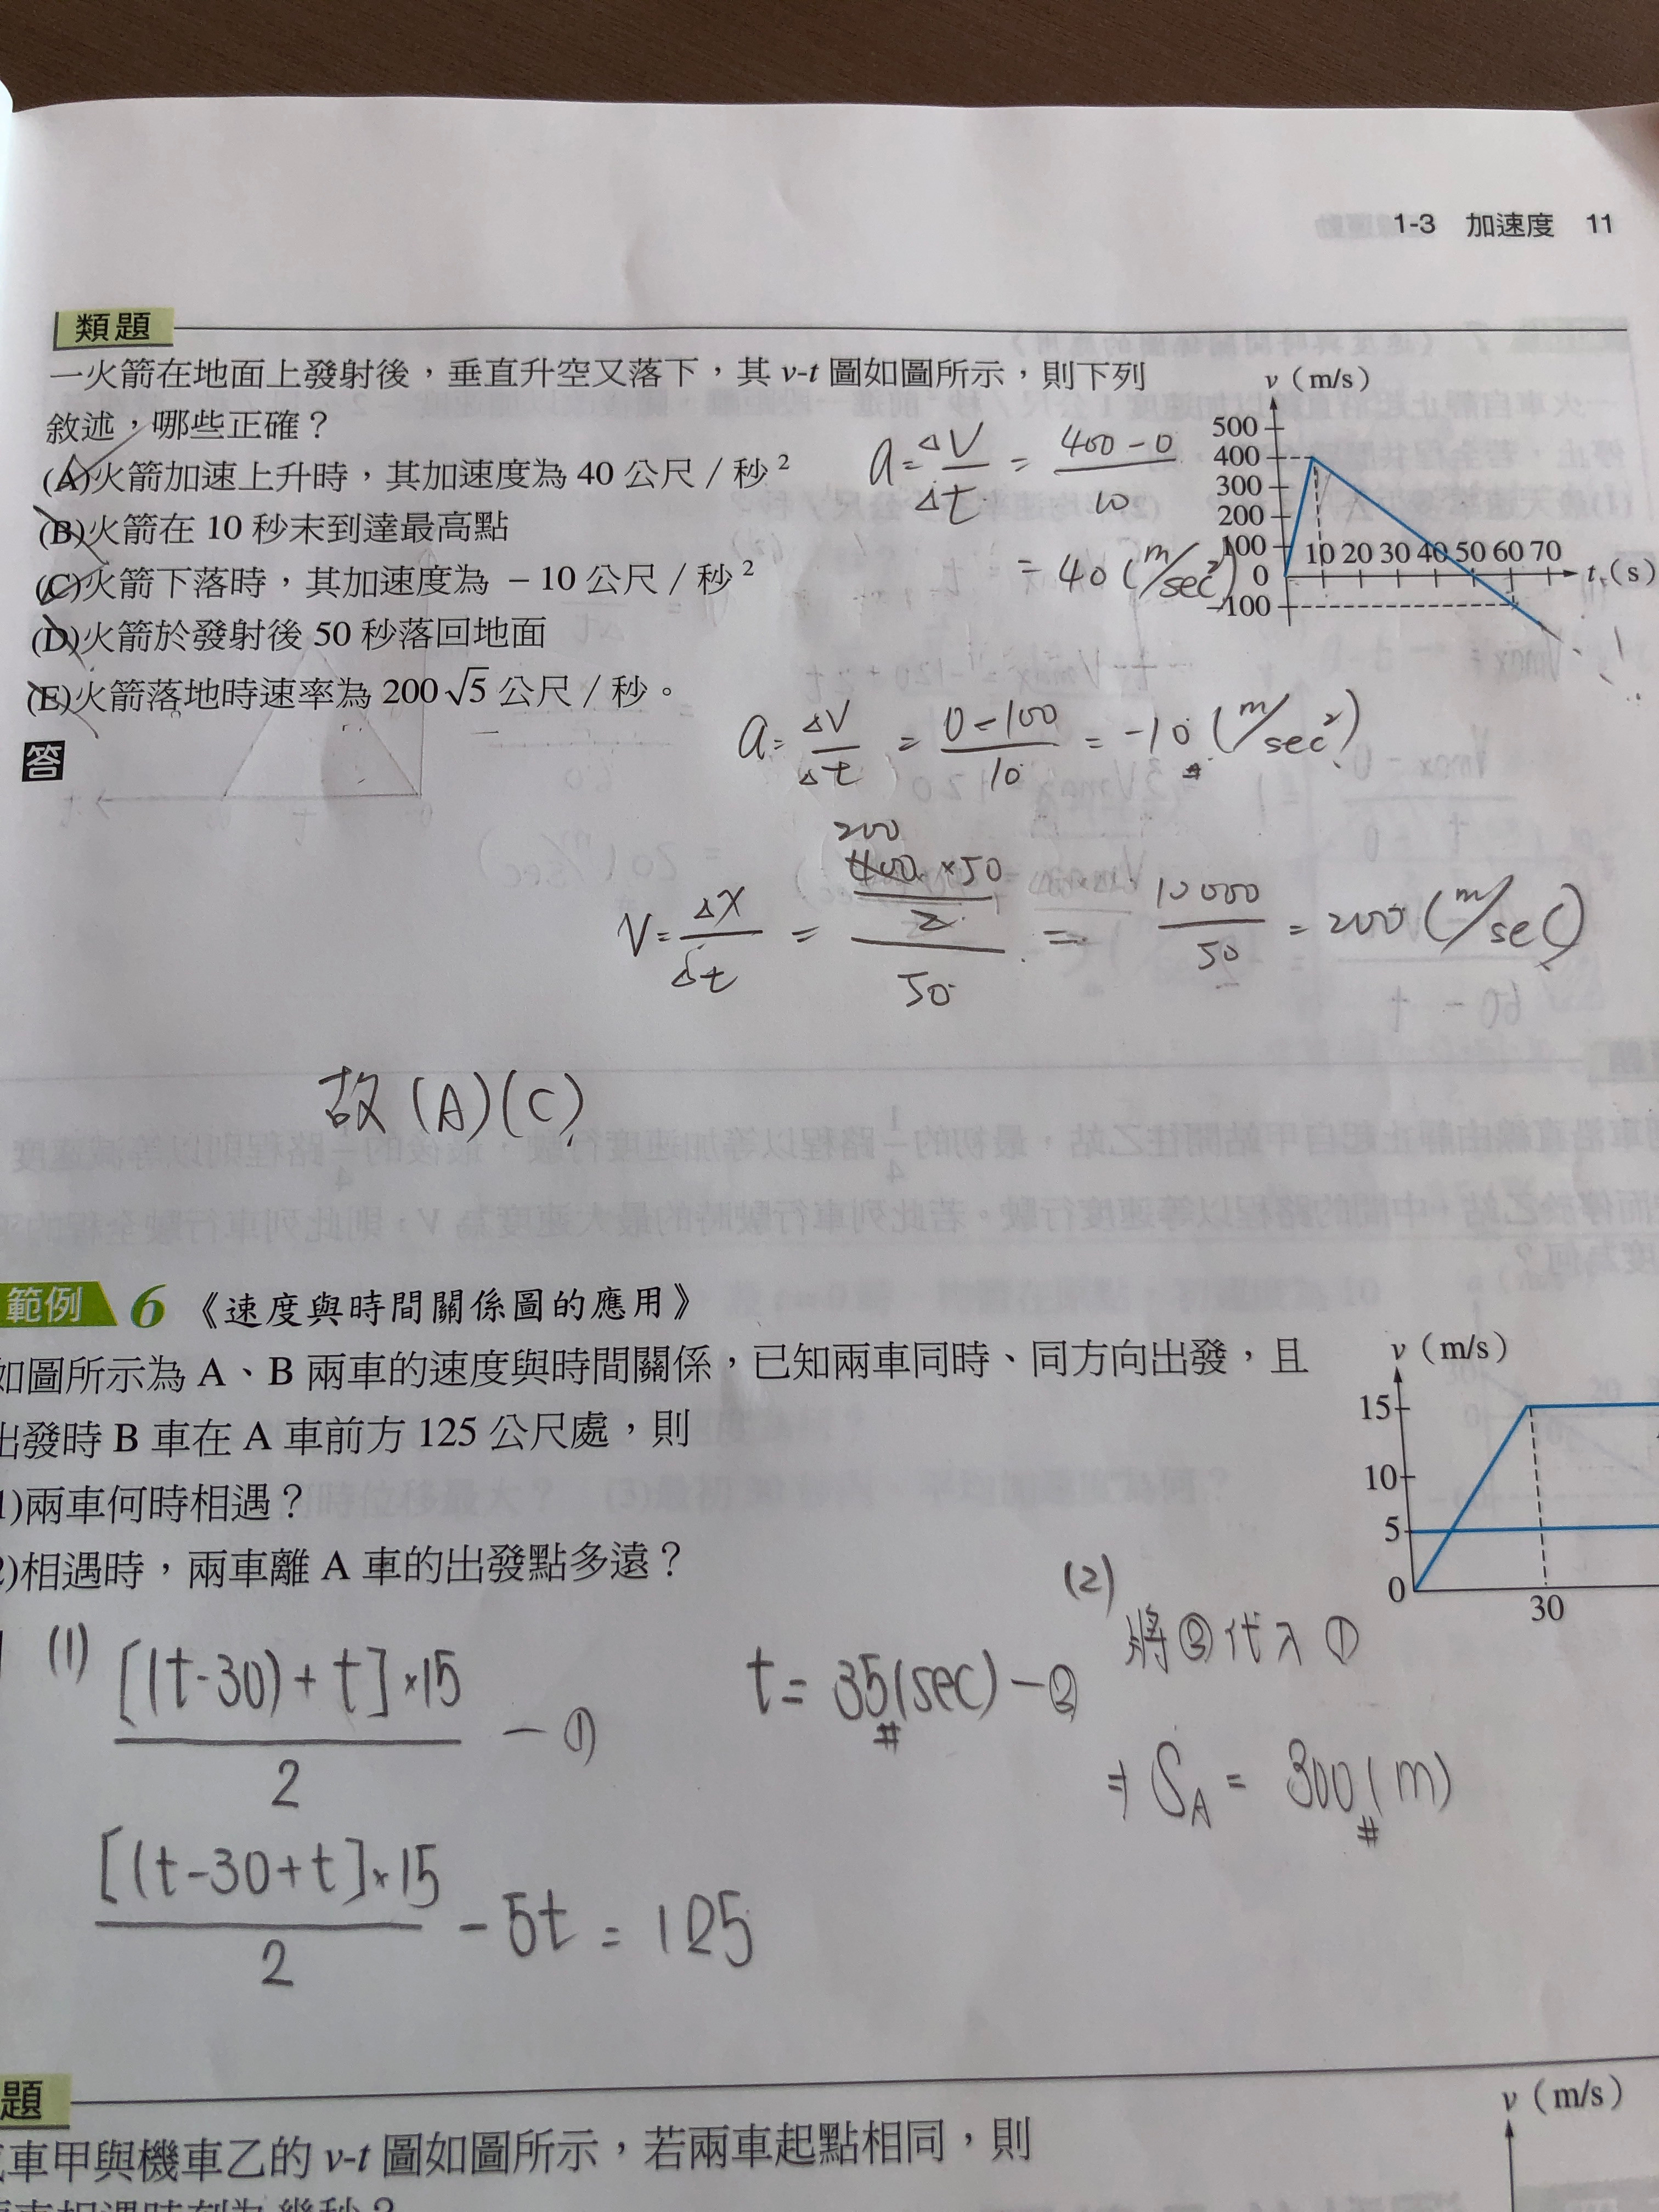 1-3 加速度 11
類題
一火箭在地面上發射後，垂直升空又落下，其 v-t 圖如圖所示，則下列
敘述，哪些正確？
(A)火箭加速上升時，其加速度為 40 公尺／秒²
(B)火箭在 10 秒末到達最高點
(C)火箭下落時，其加速度為 －10 公尺／秒²
(D)火箭於發射後 50 秒落回地面
(E)火箭落地時速率為 200√5 公尺／秒。
答
v（m/s）
500
400
300
200
100
0
-100
10 20 30 40 50 60 70
t（s）
a = ΔV/Δt = (400-0)/10
= 40 (m/sec²)
a = ΔV/Δt = (0-100)/10 = -10 (m/sec²)
#
200
V = ΔX/Δt = (400×50/2)/50 = 10000/50 = 200 (m/sec)
故 (A)(C)
範例 6 《速度與時間關係圖的應用》
如圖所示為 A、B 兩車的速度與時間關係，已知兩車同時、同方向出發，且
出發時 B 車在 A 車前方 125 公尺處，則
1)兩車何時相遇？
2)相遇時，兩車離 A 車的出發點多遠？
v（m/s）
15
10
5
0
30
(1) [(t-30)+t]×15/2 —①
[(t-30+t]×15/2 - 5t = 125
t = 35(sec) —②
#
(2)
將②代入①
⇒ S_A = 300(m)
#
題
車甲與機車乙的 v-t 圖如圖所示，若兩車起點相同，則
v（m/s）